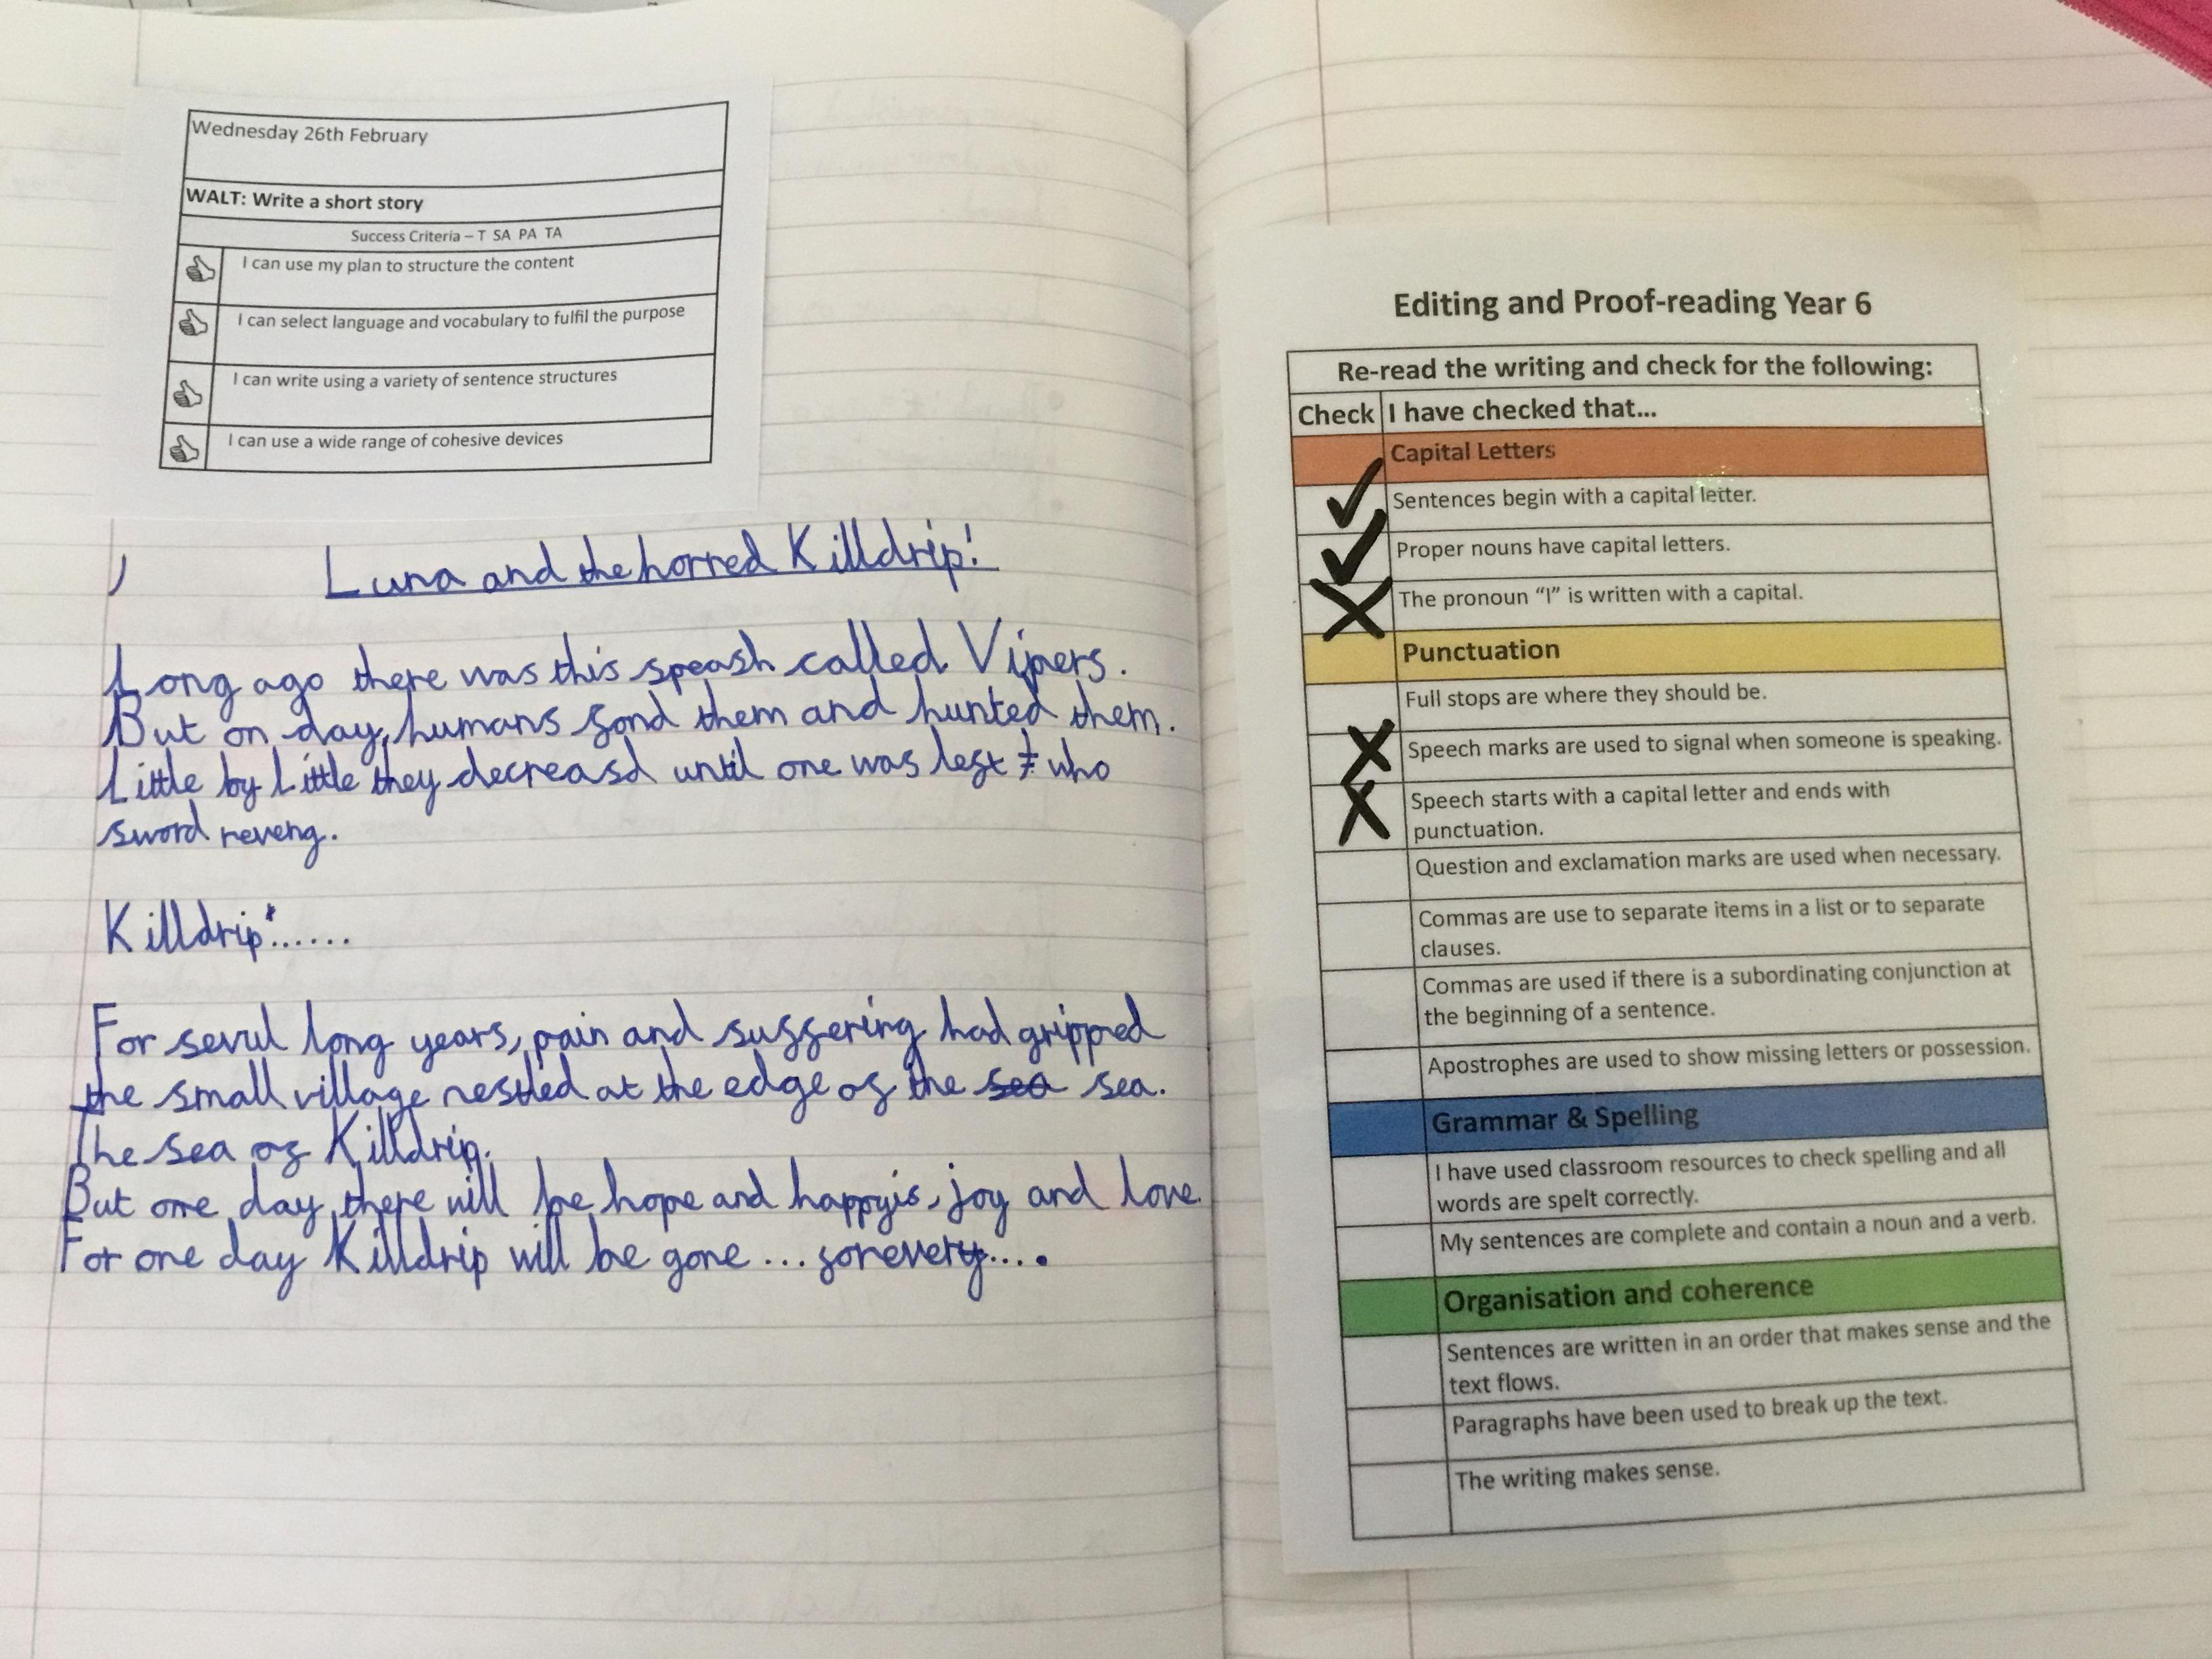 Wednesday 26th February
WALT: Write a short story
Success Criteria – T SA PA TA
I can use my plan to structure the content
I can select language and vocabulary to fulfil the purpose
I can write using a variety of sentence structures
I can use a wide range of cohesive devices
Luna and the horred Killdrip!
Long ago there was this speash called Vipers.
But on day, humans fond them and hunted them.
Little by Little they decreasd until one was left who
sword reveng.
Killdrip!......
For sevul long years, pain and suffering had gripped
the small village nestled at the edge of the sea sea.
The sea of Killdrip.
But one day there will be hope and happyis, joy and love.
For one day Killdrip will be gone ... forever....
Editing and Proof-reading Year 6
Re-read the writing and check for the following:
Check I have checked that...
Capital Letters
Sentences begin with a capital letter.
Proper nouns have capital letters.
The pronoun "I" is written with a capital.
Punctuation
Full stops are where they should be.
Speech marks are used to signal when someone is speaking.
Speech starts with a capital letter and ends with
punctuation.
Question and exclamation marks are used when necessary.
Commas are use to separate items in a list or to separate
clauses.
Commas are used if there is a subordinating conjunction at
the beginning of a sentence.
Apostrophes are used to show missing letters or possession.
Grammar & Spelling
I have used classroom resources to check spelling and all
words are spelt correctly.
My sentences are complete and contain a noun and a verb.
Organisation and coherence
Sentences are written in an order that makes sense and the
text flows.
Paragraphs have been used to break up the text.
The writing makes sense.